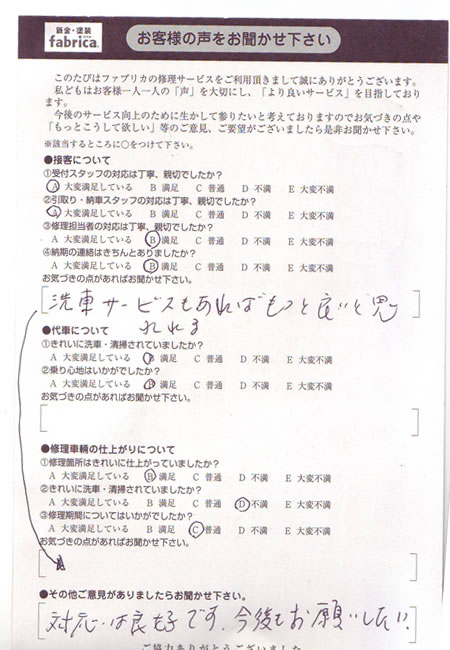 鈑金・塗装
fabrica
お客様の声をお聞かせ下さい
このたびはファブリカの修理サービスをご利用頂きまして誠にありがとうございます。
私どもはお客様一人一人の「声」を大切にし、「より良いサービス」を目指しており
ます。
今後のサービス向上のために生かして参りたいと考えておりますのでお気づきの点や
「もっとこうして欲しい」等のご意見、ご要望がございましたら是非お聞かせ下さい。
※該当するところに○をつけて下さい。
●接客について
①受付スタッフの対応は丁寧、親切でしたか？
A 大変満足している B 満足 C 普通 D 不満 E 大変不満
②引取り・納車スタッフの対応は丁寧、親切でしたか？
A 大変満足している B 満足 C 普通 D 不満 E 大変不満
③修理担当者の対応は丁寧、親切でしたか？
A 大変満足している B 満足 C 普通 D 不満 E 大変不満
④納期の連絡はきちんとありましたか？
A 大変満足している B 満足 C 普通 D 不満 E 大変不満
お気づきの点があればお聞かせ下さい。
洗車サービスもあればもっと良いと思
われる
●代車について
①きれいに洗車・清掃されていましたか？
A 大変満足している B 満足 C 普通 D 不満 E 大変不満
②乗り心地はいかがでしたか？
A 大変満足している B 満足 C 普通 D 不満 E 大変不満
お気づきの点があればお聞かせ下さい。
●修理車輌の仕上がりについて
①修理箇所はきれいに仕上がっていましたか？
A 大変満足している B 満足 C 普通 D 不満 E 大変不満
②きれいに洗車・清掃されていましたか？
A 大変満足している B 満足 C 普通 D 不満 E 大変不満
③修理期間についてはいかがでしたか？
A 大変満足している B 満足 C 普通 D 不満 E 大変不満
お気づきの点があればお聞かせ下さい。
●その他ご意見がありましたらお聞かせ下さい。
対応は良好です。今後もお願いしたい。
ご協力ありがとうございました